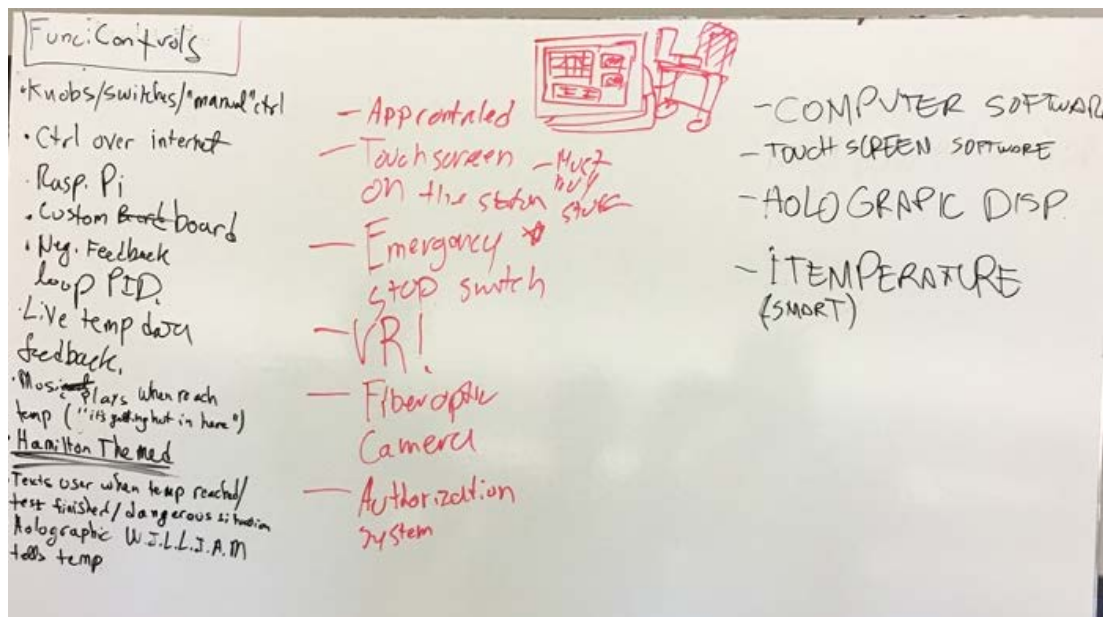 Func: Controls
• Knobs/switches/"manual" ctrl
• Ctrl over internet
• Rasp. Pi
• Custom board
• Neg. Feedback
loop PID.
• Live temp data
feedback.
• Music plays when reach
temp ("it's getting hot in here")
• Hamilton Themed
• Texts user when temp reached/
test finished/dangerous situation
Holographic W.I.L.L.I.A.M
tells temp
- App controled
- Touch screen
on the station
- Emergancy
stop switch
- VR!
- Fiber optic
Camera
- Authorization
system
- COMPUTER SOFTWAR
- TOUCH SCREEN SOFTWORE
- HOLOGRAPIC DISP.
- iTEMPERATURE
(SMART)